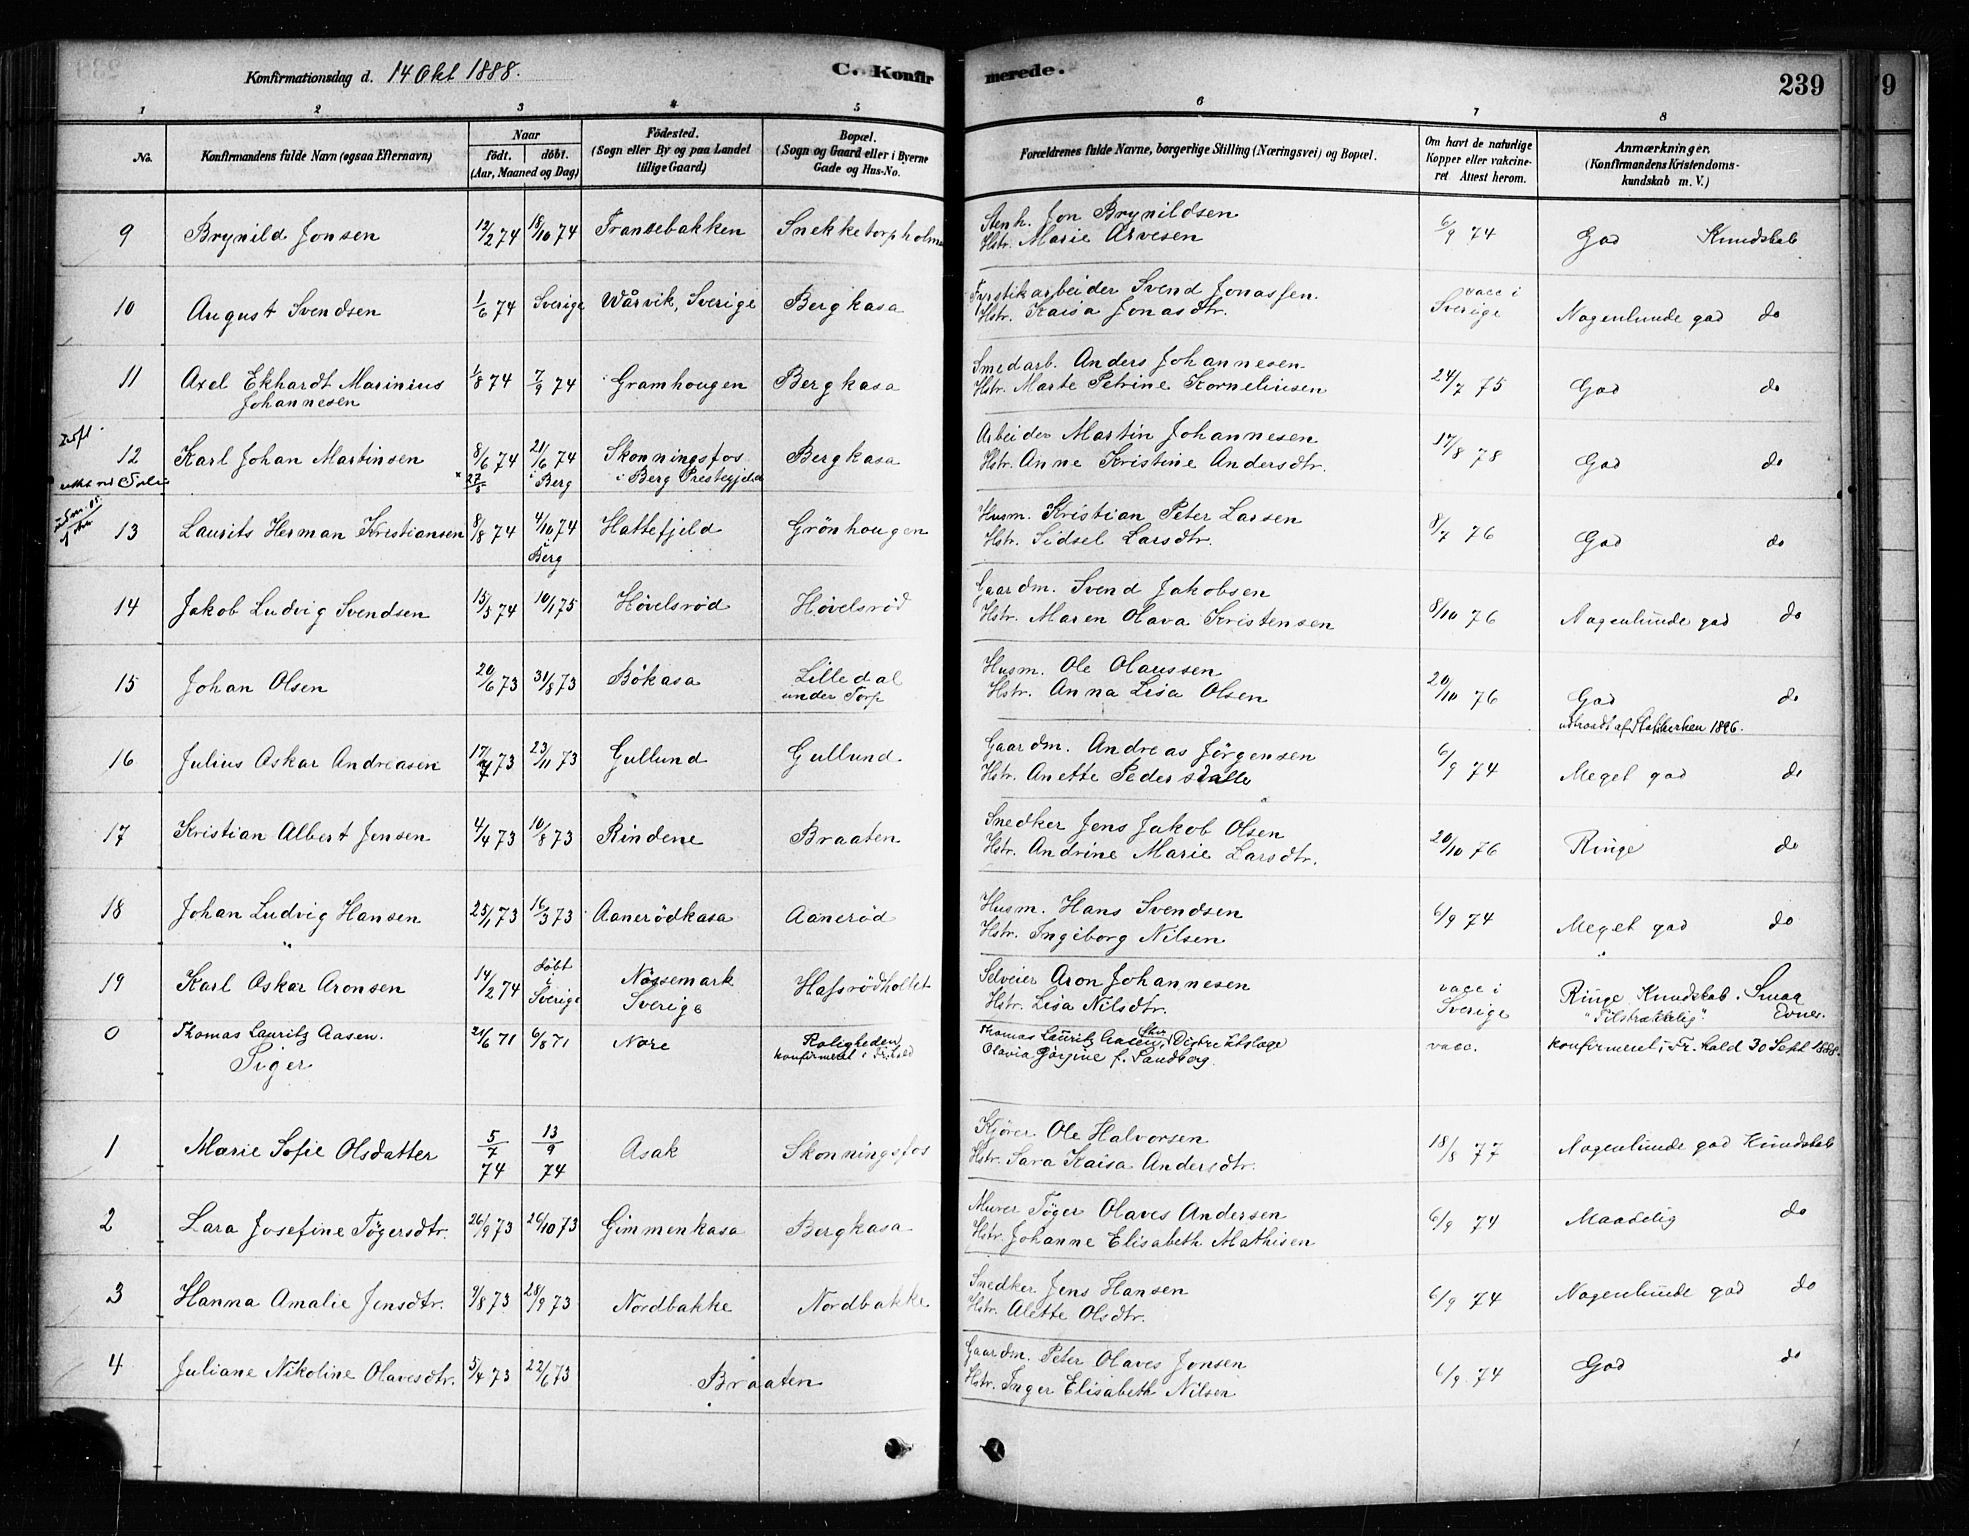 Konfirmationsdag d. 14 Okt 1888.
C. Konfirmerede.
239
1 2 3 4 5 6 7 8
No.
Konfirmandens fulde Navn (ogsaa Efternavn)
Naar
födt. döbt.
(Aar, Maaned og Dag)
Födested.
(Sogn eller By og paa Landet
tillige Gaard)
Bopæl.
(Sogn og Gaard eller i Byerne
Gade og Hus-No.
Forældrenes fulde Navne, borgerlige Stilling (Næringsvei) og Bopæl.
Om havt de naturlige
Kopper eller vakcine-
ret Attest herom.
Anmærkninger.
(Konfirmandens Kristendoms-
kundskab m. V.)
9 Brynild Jonsen 12/2 74 18/10 74 Transebakken Snekketorpholm Stenh. Jon Brynildsen 6/9 74 God Kundskab
Hstr. Marie Arvesen
10 August Svendsen 1/6 74 Sverige Wårvik, Sverige Bergkasa Fyrstikarbeider Svend Jonassen. vacc i Sverige Nogenlunde god do
Hstr. Kaisa Jonasdtr.
11 Axel Ekhardt Marinius 1/8 74 7/9 74 Gramhougen Bergkasa Smedarb. Anders Johannesen 24/7 75 God do
Johannesen Hstr. Marte Petrine Korneliusen
12 Karl Johan Martinsen 8/6 74 21/6 74 Skonningsfos Bergkasa Arbeider Martin Johannesen 17/8 78 God do
27/5 i Berg i Berg Prestegjeld Hstr. Anne Kristine Andersdtr.
13 Laurits Herman Kristiansen 8/8 74 4/10 74 Hattefjeld Grönhougen Husm. Kristian Peter Larsen 8/7 76 God do
Berg Hstr. Sidsel Larsdtr.
14 Jakob Ludvig Svendsen 15/3 74 10/1 75 Hövelsröd Hövelsröd Gaardm. Svend Jakobsen 8/10 76 Nogenlunde god do
Hstr. Maren Olava Kristensen
15 Johan Olsen 20/6 73 31/8 73 Bökasa Lilledal Husm. Ole Olaussen 20/10 76 God do
under Torp Hstr. Anna Lisa Olsen
udtraadt af Statskirken 1896.
16 Julius Oskar Andreasen 17/7 73 23/11 73 Gullund Gullund Gaardm. Andreas Jörgensen 6/9 74 Meget god do
Hstr. Anette Pedersdatter
17 Kristian Albert Jensen 4/4 73 10/8 73 Rindene Braaten Snedker Jens Jakob Olsen 20/10 76 Ringe do
Hstr. Andrine Marie Larsdtr.
18 Johan Ludvig Hansen 25/1 73 16/3 73 Aanerödkasa Aaneröd Husm. Hans Svendsen 6/9 74 Meget god do
Hstr. Ingeborg Nilsen
19 Karl Oskar Aronsen 14/2 74 döbt i Sverige Nössemark Hafsrödholtet Selveier Aron Johannesen vacc i Sverige Ringe Kundskab. Smaa Evner.
Sverige Hstr. Lisa Nilsdtr. "Tilstrækkelig".
0 Thomas Lauritz Aasen. 21/6 71 6/8 71 Nore Roligheden Thomas Lauritz Aasen, vacc. konfirmeret i Fr.hald 30 Sept 1888.
Siger konfirmeret i Fr.hald Olavia Görgine f. Sandberg.
1 Marie Sofie Olsdatter 5/7 74 13/9 74 Asak Skonningsfos Kjörer Ole Halvorsen 18/8 77 Nogenlunde god Kundskab
Hstr. Sara Kaisa Andersdtr.
2 Lara Josefine Tögersdtr. 26/9 73 26/10 73 Gimmenkasa Bergkasa Murer Töger Olaves Andersen 6/9 74 Maadelig do
Hstr. Johanne Elisabeth Mathisen
3 Hanna Amalie Jensdtr. 9/8 73 28/9 73 Nordbakke Nordbakke Snedker Jens Hansen 6/9 74 Nogenlunde god do
Hstr. Alette Olsdtr.
4 Juliane Nikoline Olavesdtr. 5/4 73 22/6 73 Braaten Gaardm. Peter Olaves Jonsen 6/9 74 God do
Hstr. Inger Elisabeth Nilsen